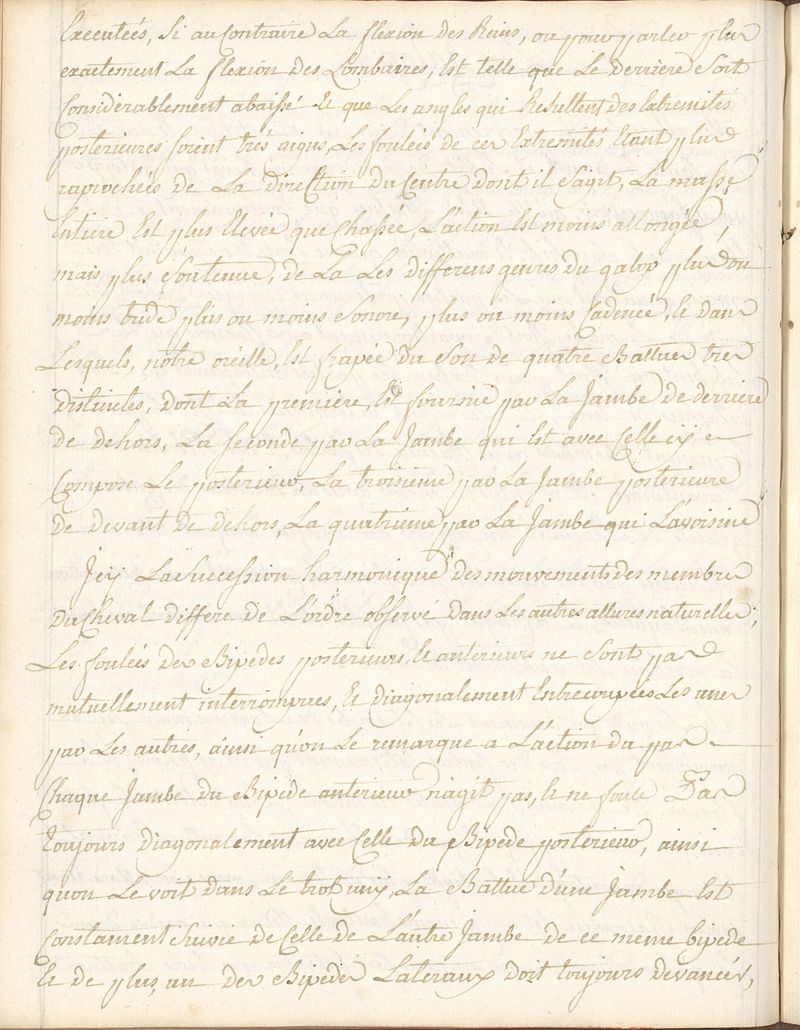 Executées, Si au Contraire La flexion des Reins, ou pour parler plus
exactement La flexion des Lombaires, Est telle que Le derriere Soit
Considerablement abaissé Et que Les angles qui Resultent des Extremités
posterieures soient trés aigus, Les foulées de ces Extremités Etant plus
raprochées de La direction du Centre dont il s'agit, La masse
Entiere Est plus Elevée que Chassée, L'action Est moins allongée,
mais plus Soutenue, de La Les differens genres du galop plus ou
moins tride plus ou moins Sonore, plus ou moins Cadencé, Et dans
Lesquels, notre oreille, Est frapée du Son de quatre Battues tres
distinctes, dont La premiere, Est fournie par La Jambe de derriere
de dehors, La Seconde par La Jambe qui Est avec Celle cy
Compose Le posterieur, La troisieme par La Jambe posterieure
de devant de dehors, La quatrieme par La Jambe qui L'avoisine
Jcy La Sucession harmonique des mouvements des membres
du Cheval differe de L'ordre observé dans Les autres allures naturelles,
Les foulées des Bipedes posterieurs, Et anterieurs ne Sont pas
mutuellement interrompues, Et diagonalement Entrecoupées Les unes
par Les autres, ainsi qu'on Le remarque a L'action du pas
Chaque Jambe du Bipede anterieur n'agit pas, Et ne foule Pas
toujours diagonalement avec Celle du Bipede posterieur, ainsi
quon Le voit dans Le trot uny, La Battue d'une Jambe Est
Constament Suivie de Celle de L'autre Jambe de ce meme bipede
Et de plus, un des Bipedes Lateraux doit toujours devancer,